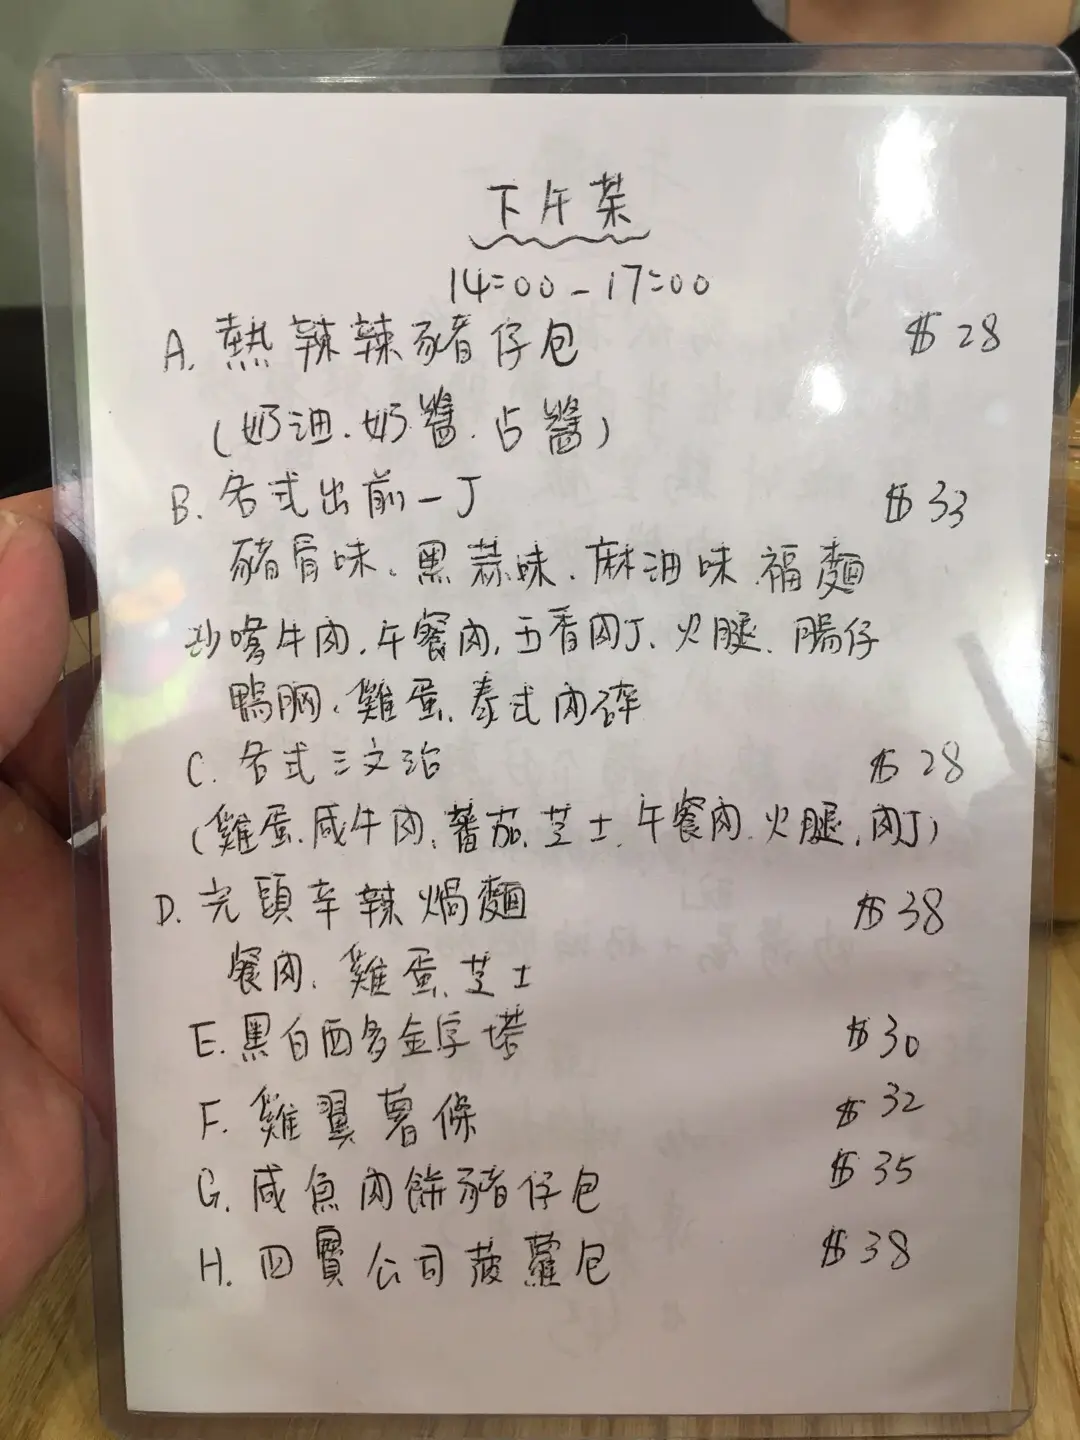 下午茶
14:00-17:00
A. 熱辣辣豬仔包 $28
(奶油.奶醬.占醬)
B. 各式出前一丁 $33
豬骨味、黑蒜味、麻油味、福麵
沙嗲牛肉、午餐肉、五香肉丁、火腿、腸仔
鴨胸、雞蛋、泰式肉碎
C. 各式三文治 $28
(雞蛋.咸牛肉、蕃茄、芝士、午餐肉、火腿、肉丁)
D. 完頭辛辣焗麵 $38
餐肉、雞蛋、芝士
E. 黑白西多金字塔 $30
F. 雞翼薯條 $32
G. 咸魚肉餅豬仔包 $35
H. 四寶公司菠蘿包 $38